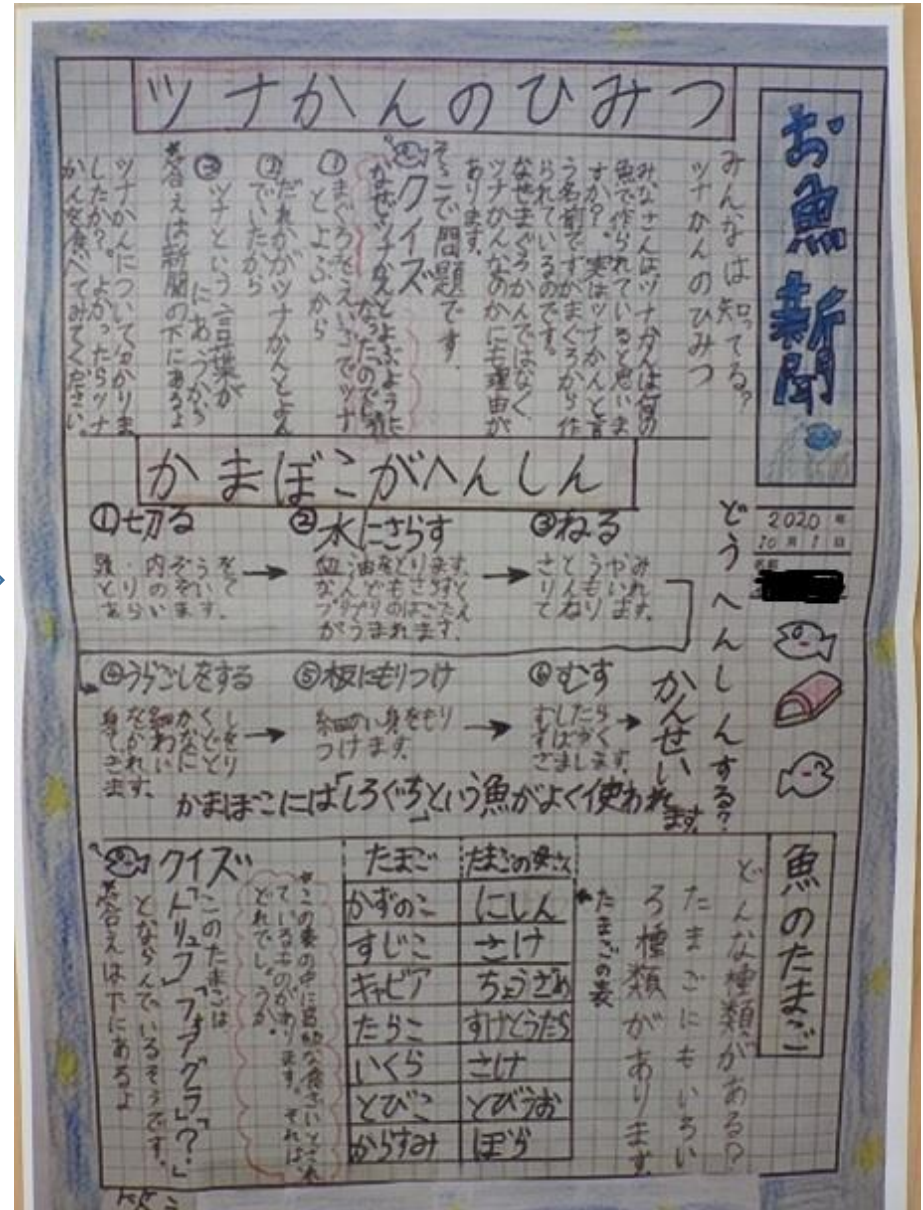 お魚新聞
2020年
10月1日
ツナかんのひみつ
みんなは知ってる?
ツナかんのひみつ
みなさんは、ツナかんは何の
魚で作られていると思いま
すか?。実はツナかんと言
う名前ですがまぐろから作
られているのです。
なぜまぐろかんではなく、
ツナかんなのかにも理由が
あります。
そこで問題です。
クイズ
なぜツナかんとよぶように
①まぐろをえいごでツナ
とよぶから
②だれかがツナかんとよん
でいたから
③ツナという言葉が
にあうから
*答えは新聞の下にあるよ
ツナかんについて分かりま
したか?。よかったらツナ
かんを食べてみてください。
かまぼこがへんしん
どうへんしんする?
①切る
頭・内ぞうを
とりのぞいて
あらいます。
②水にさらす
血、油をとります。
なんどもさらすと
プリプリのはごたえ
がうまれます。
③ねる
さとうやみ
りんもいれ
てねります。
④うらごしをする
身を細かくし
てがわなどを
きれいにとり
ます。
⑤板にもりつけ
細かい身をもり
つけます。
⑥むす
むしたら
すばやく
さまします。
かんせい
かまぼこには「しろぐち」という魚がよく使われ
ます。
魚のたまご
どんな種類がある?
たまごにもいろい
ろ種類があります
たまごの表
たまご たまごの母さん
かずのこ にしん
すじこ さけ
キャビア ちょうざめ
たらこ すけとうだら
いくら さけ
とびこ とびうお
からすみ ぼら
*この表の中に高級な食ざいとされ
ているものがあります。それは
どれでしょうか。
クイズ
このたまごは
「トリュフ」「フォアグラ」「?」
とならんでいるそうです。
答えは下にあるよ